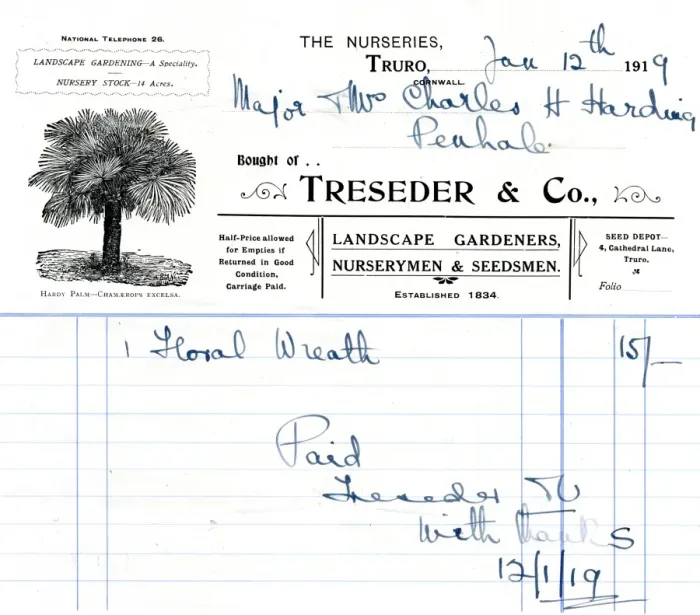 NATIONAL TELEPHONE 26.
LANDSCAPE GARDENING—A Speciality.
NURSERY STOCK—14 Acres.
HARDY PALM—CHAMÆROPS EXCELSA.
THE NURSERIES,
TRURO, Jan 12th 1919
CORNWALL
Major & Mrs Charles H Harding
Penhale
Bought of . .
TRESEDER & Co.,
Half-Price allowed
for Empties if
Returned in Good
Condition,
Carriage Paid.
LANDSCAPE GARDENERS,
NURSERYMEN & SEEDSMEN.
ESTABLISHED 1834.
SEED DEPOT—
4, Cathedral Lane,
Truro.
Folio
1 Floral Wreath 15/-
Paid
Treseder
With thanks
12/1/19